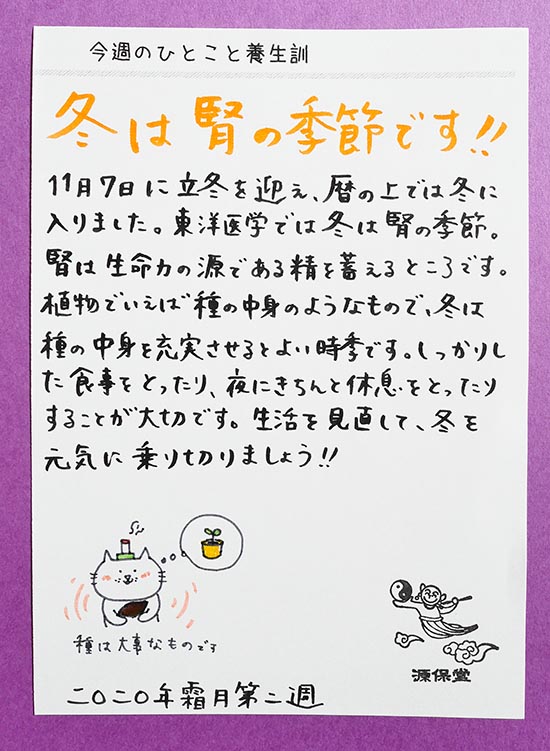 今週のひとこと養生訓
冬は腎の季節です!!
11月7日に立冬を迎え、暦の上では冬に
入りました。東洋医学では冬は腎の季節。
腎は生命力の源である精を蓄えるところです。
植物でいえば種の中身のようなもので、冬は
種の中身を充実させるとよい時季です。しっかりし
た食事をとったり、夜にきちんと休息をとったり
することが大切です。生活を見直して、冬を
元気に乗り切りましょう!!
種は大事なものです
源保堂
二〇二〇年霜月第二週